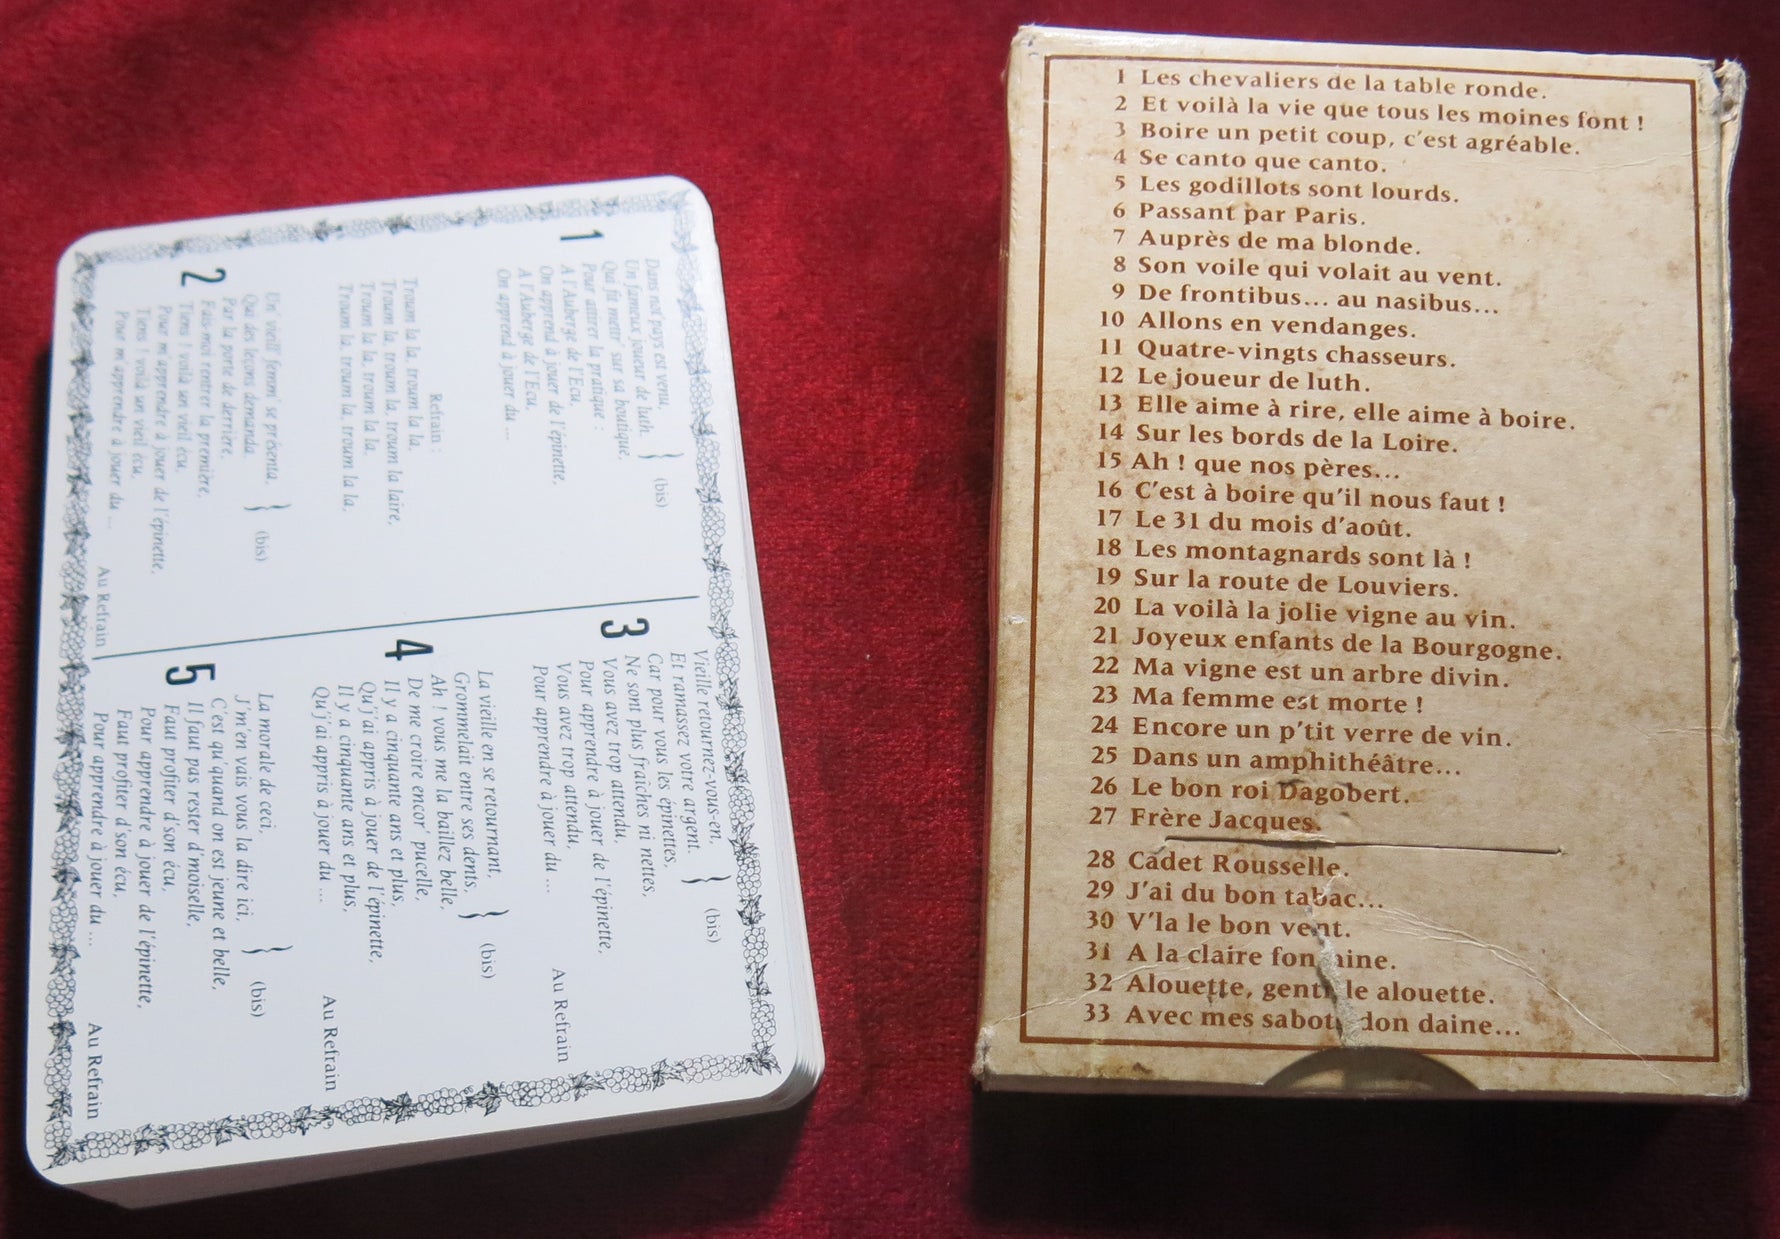 1
Dans not' pays est venu,
Un fameux joueur de luth. } (bis)
Qui fit mettr' sur sa boutique,
Pour attirer la pratique :
A l'Auberge de l'Ecu,
On apprend à jouer de l'épinette,
A l'Auberge de l'Ecu,
On apprend à jouer du ...
Refrain :
Troum la la, troum la la,
Troum la, troum la, troum la laire,
Troum la la, troum la la,
Troum la, troum la, troum la la.
2
Un' vieill' femm' se présenta,
Qui des leçons demanda. } (bis)
Par la porte de derrière,
Fais-moi rentrer la première,
Tiens ! voilà un vieil écu,
Pour m'apprendre à jouer de l'épinette,
Tiens ! voilà un vieil écu,
Pour m'apprendre à jouer du ...
Au Refrain
3
Vieille retournez-vous-en,
Et ramassez votre argent. } (bis)
Car pour vous les épinettes,
Ne sont plus fraîches ni nettes,
Vous avez trop attendu,
Pour apprendre à jouer de l'épinette,
Vous avez trop attendu,
Pour apprendre à jouer du ...
Au Refrain
4
La vieille en se retournant,
Grommelait entre ses dents, } (bis)
Ah ! vous me la baillez belle,
De me croire encor' pucelle,
Il y a cinquante ans et plus,
Qu'j'ai appris à jouer de l'épinette,
Il y a cinquante ans et plus,
Qu'j'ai appris à jouer du ...
Au Refrain
5
La morale de ceci,
J'm'en vais vous la dire ici, } (bis)
C'est qu'quand on est jeune et belle,
Il faut pas rester d'moiselle,
Faut profiter d'son écu,
Pour apprendre à jouer de l'épinette,
Faut profiter d'son écu,
Pour apprendre à jouer du ...
Au Refrain
1 Les chevaliers de la table ronde.
2 Et voilà la vie que tous les moines font !
3 Boire un petit coup, c'est agréable.
4 Se canto que canto.
5 Les godillots sont lourds.
6 Passant par Paris.
7 Auprès de ma blonde.
8 Son voile qui volait au vent.
9 De frontibus... au nasibus...
10 Allons en vendanges.
11 Quatre-vingts chasseurs.
12 Le joueur de luth.
13 Elle aime à rire, elle aime à boire.
14 Sur les bords de la Loire.
15 Ah ! que nos pères...
16 C'est à boire qu'il nous faut !
17 Le 31 du mois d'août.
18 Les montagnards sont là !
19 Sur la route de Louviers.
20 La voilà la jolie vigne au vin.
21 Joyeux enfants de la Bourgogne.
22 Ma vigne est un arbre divin.
23 Ma femme est morte !
24 Encore un p'tit verre de vin.
25 Dans un amphithéâtre...
26 Le bon roi Dagobert.
27 Frère Jacques.
28 Cadet Rousselle.
29 J'ai du bon tabac...
30 V'la le bon vent.
31 A la claire fontaine.
32 Alouette, gentille alouette.
33 Avec mes sabots don daine...